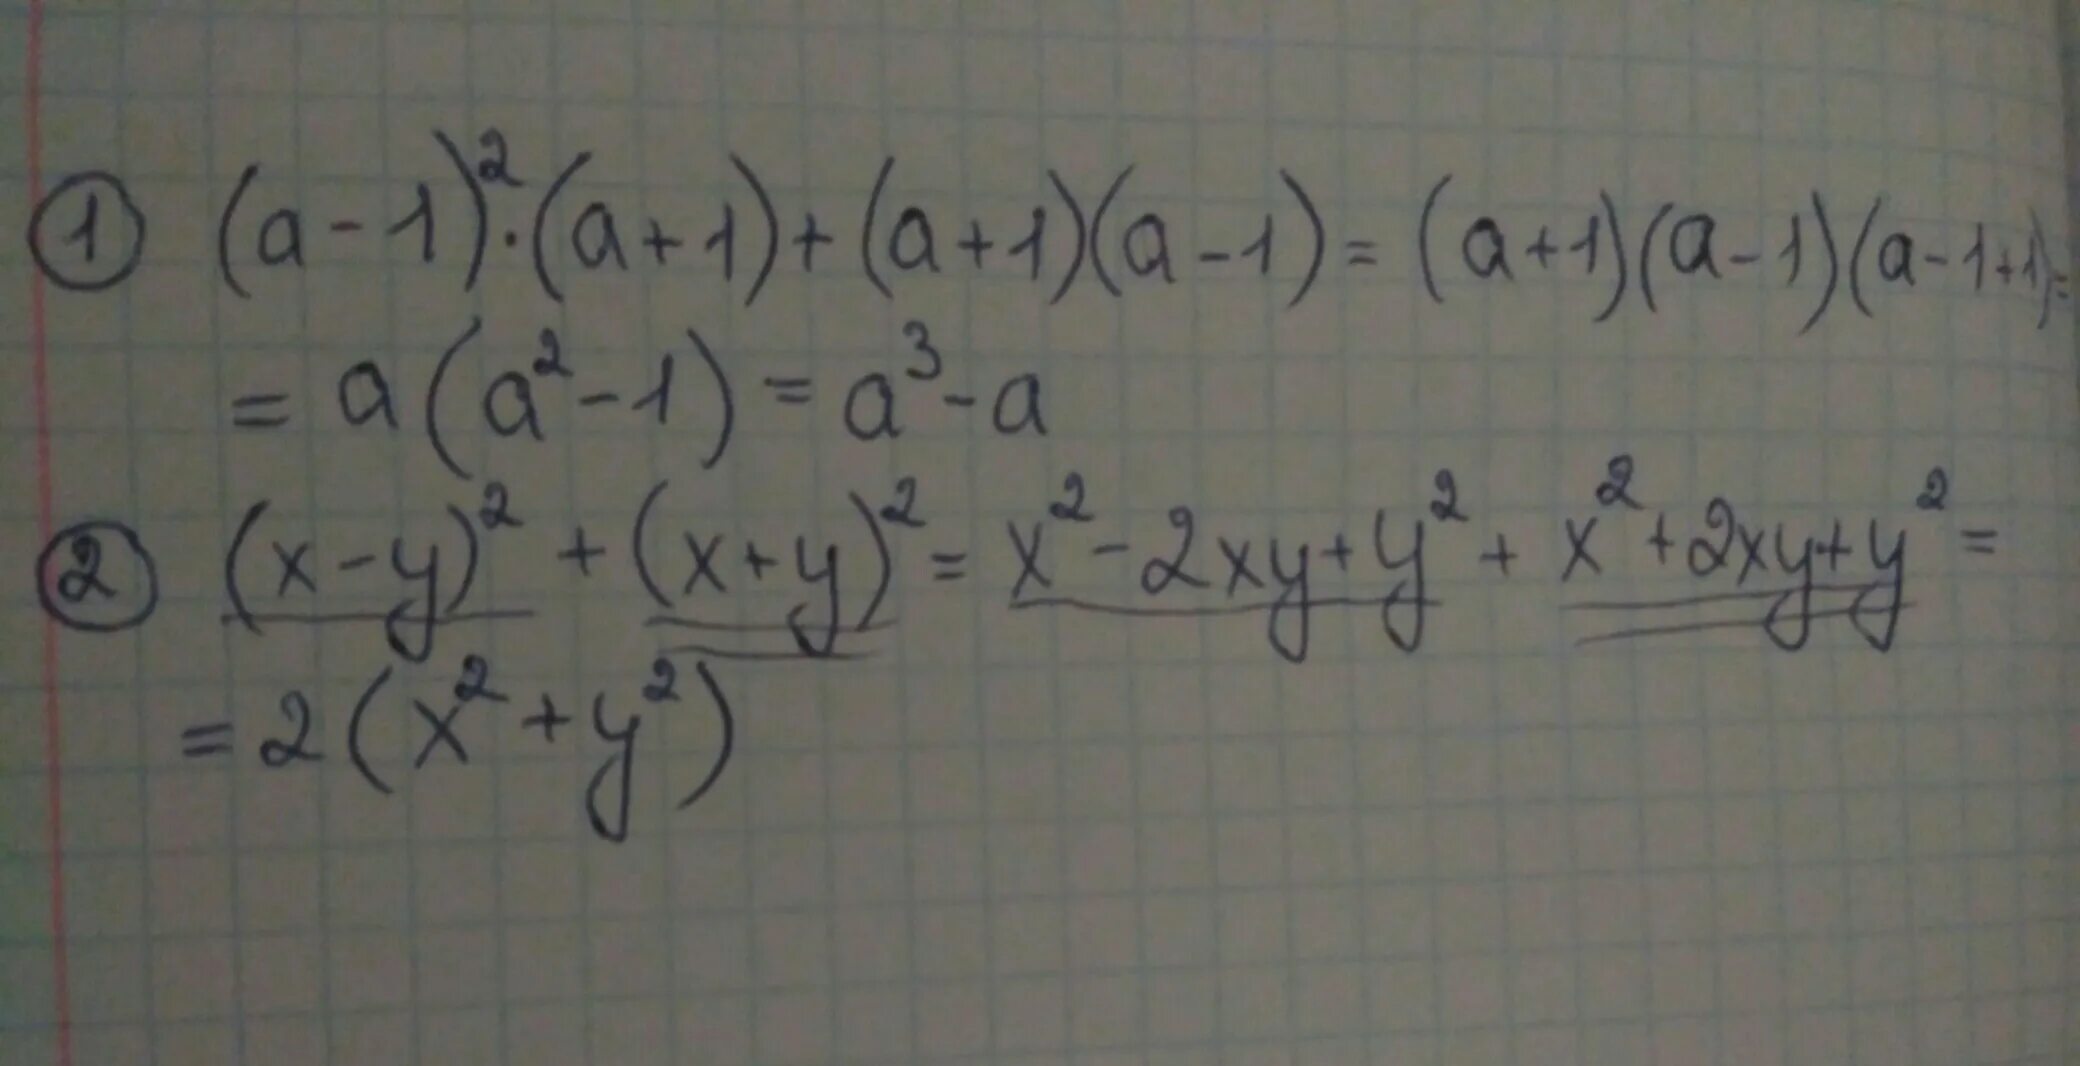 ① (a-1)²·(a+1)+(a+1)(a-1)=(a+1)(a-1)(a-1+1)=
=a(a²-1)=a³-a
② (x-y)²+(x+y)²=x²-2xy+y²+x²+2xy+y²=
=2(x²+y²)